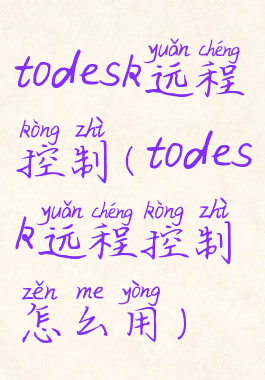 yuǎn chéng
todesk远程
kòng zhì
控制(todes
yuǎn chéng kòng zhì
k远程控制
zěn me yòng
怎么用)